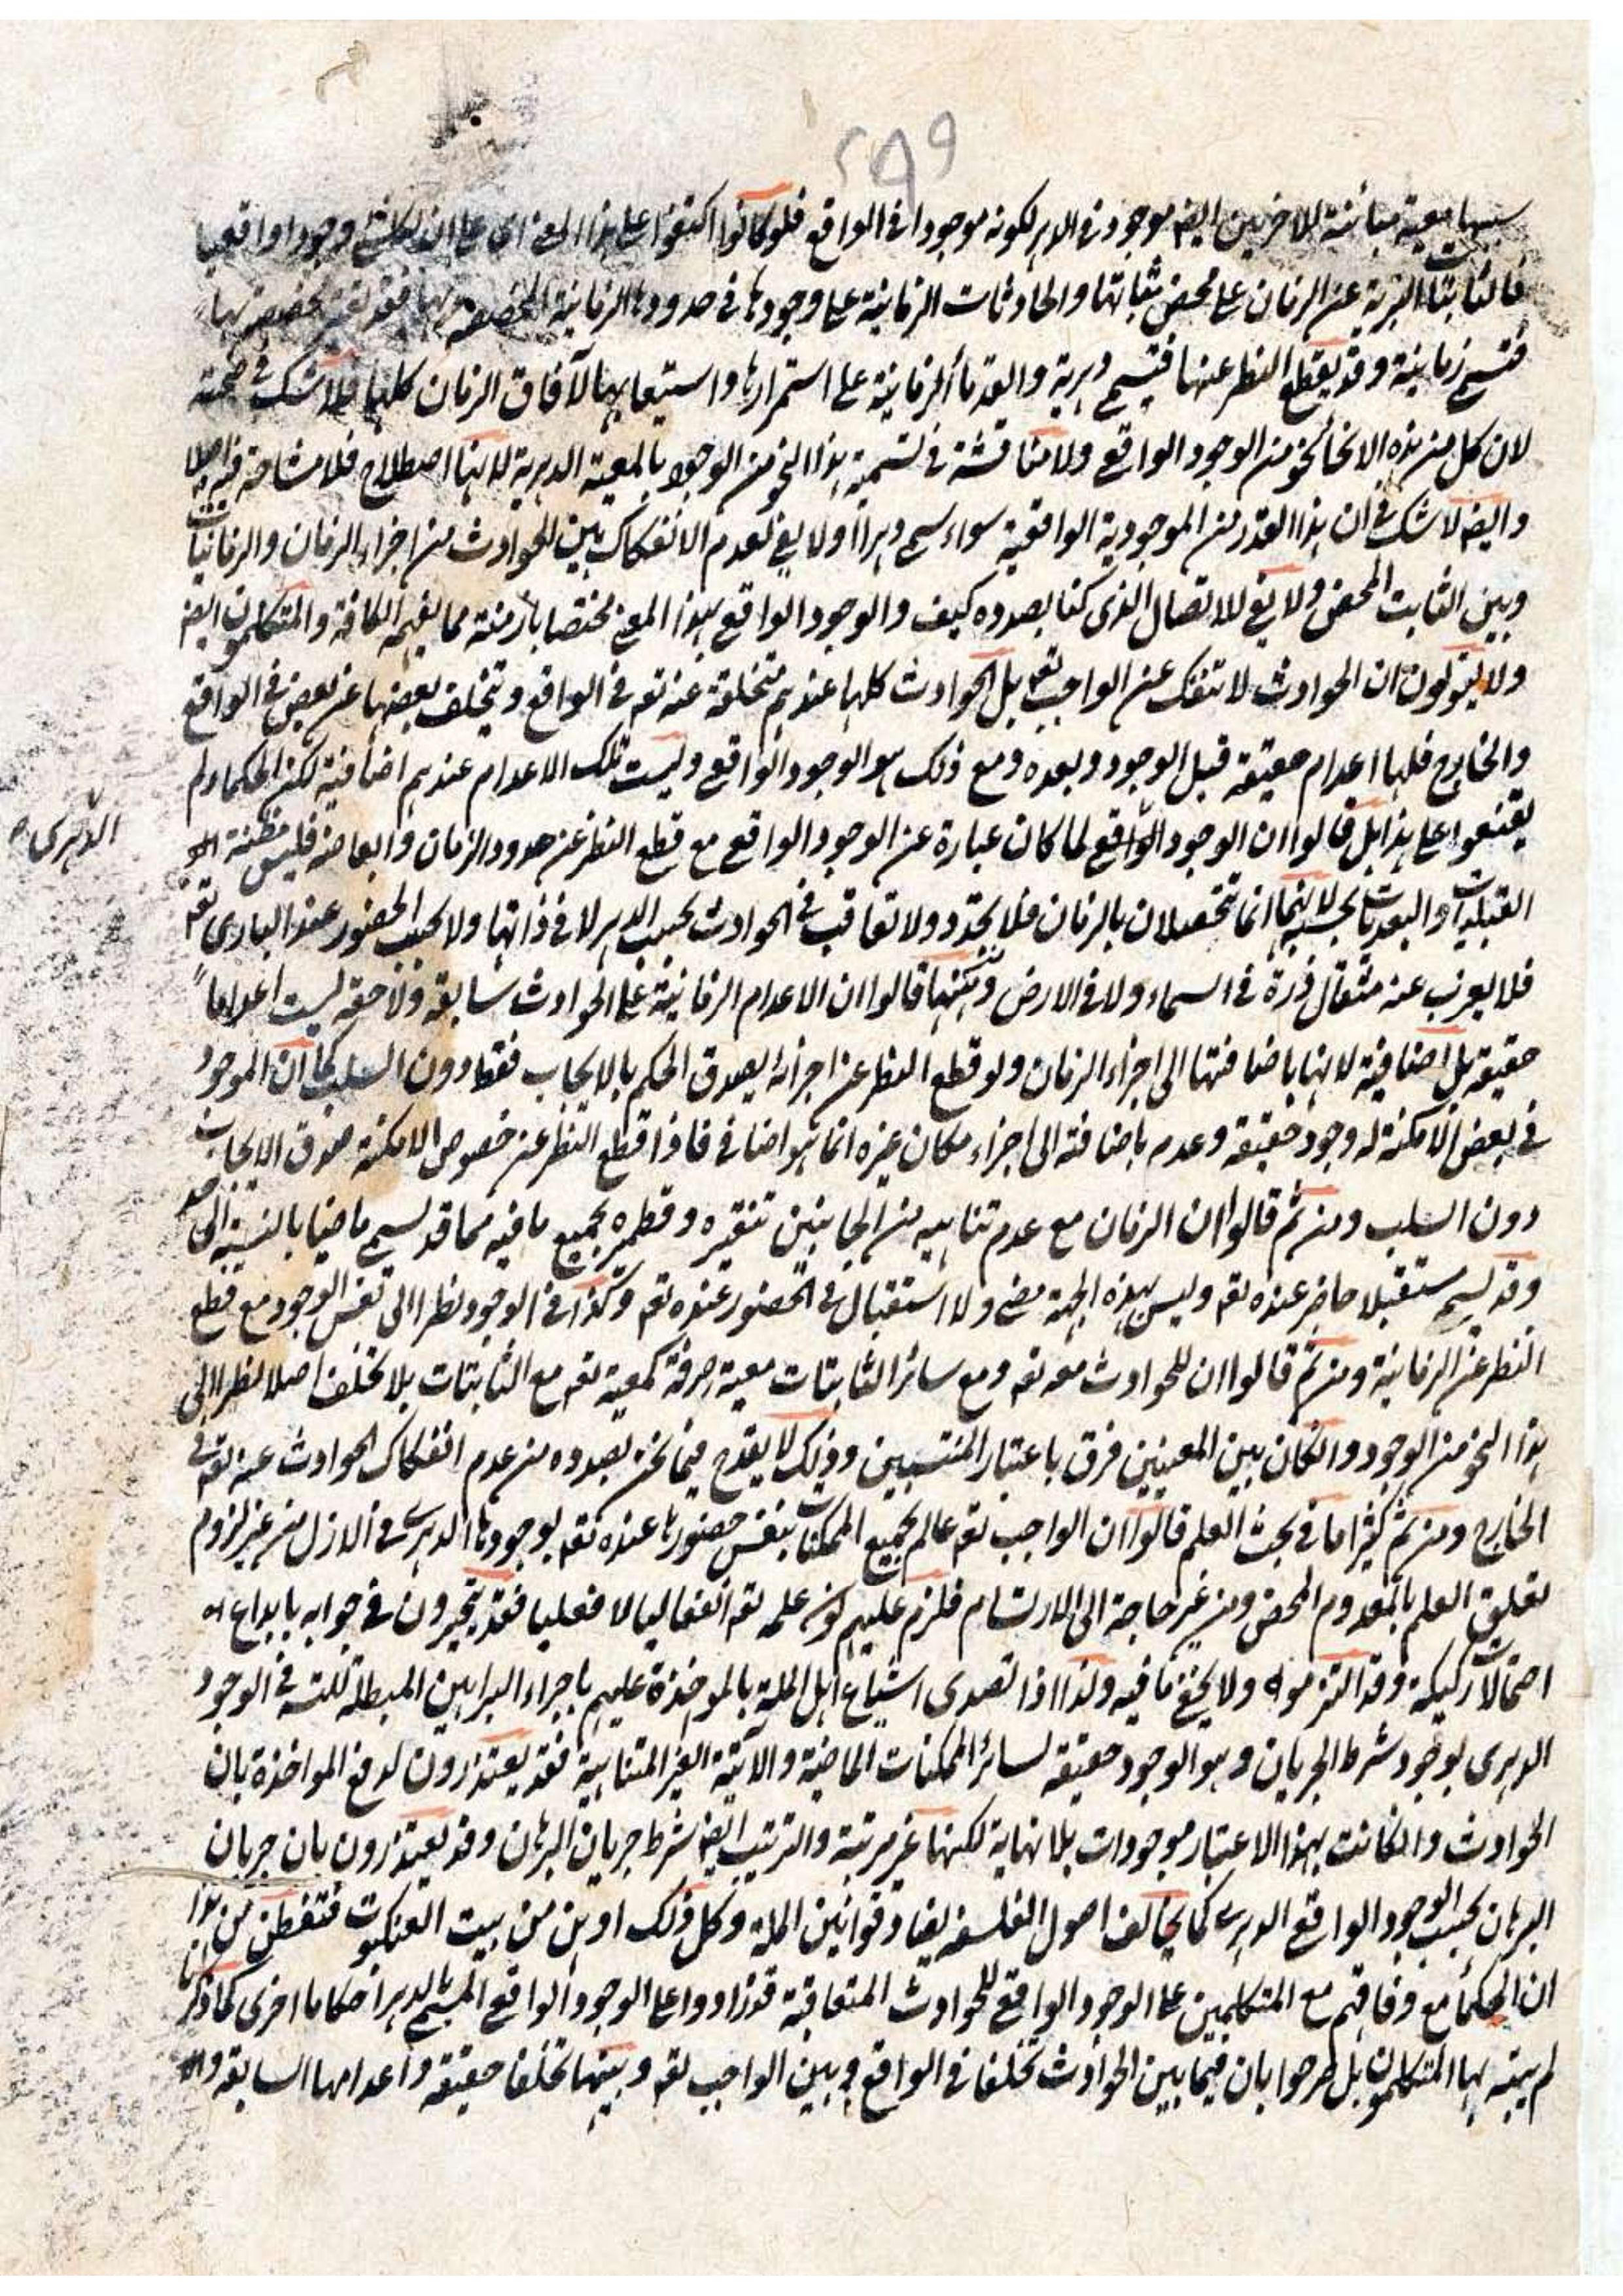 ٢٩٩
معية مبائنة للاخريين ايضه موجود فى الدهر لكونه موجودا فى الواقع فلو كانوا اكتفوا على هذا المعنى اى على ان لكل شئ وجودا واقعيا
فالثابتات البرية عن الزمان على محض ثباتها والحادثات الزمانية على وجودها فى حدودها الزمانية المختصة بها فقد تخصيصه بها
فتسمى زمانية وقد يقطع النظر عنها فتسمى دهرية والقدماء الزمانية على استمرارها واستيعابها لآفاق الزمان كلها فلا شك فى صحته
لان كل من هذه الانحاء نحو من الوجود الواقعى ولا مناقشة فى تسمية هذا النحو من الوجود بالمعية الدهرية لانها اصطلاح فلا مشاحة فيه اصلا
وايضه لا شك فى ان هذا القدر من الموجودية الواقعية سواء سمى دهرا اولا يفى لعدم الانفكاك بين الحوادث من اجزاء الزمان والزمانيات
وبين الثابت المحض ولا يفى للاتصال الذى كنا بصدده كيف والوجود الواقعى بهذا المعنى مختصا بازمنته مما يفهمه الكافة والمتكلمون ايضه
ولا يقولون ان الحوادث لا تنفك عن الواجب تعه بل الحوادث كلها عندهم متخلفة عنه تعه فى الواقع ويتخلف بعضها عن بعض فى الواقع
والخارج فلها اعدام حقيقة قبل الوجود وبعده ومع ذلك هو الوجود الواقعى وليست تلك الاعدام عندهم اضافية لكن الحكماء لم
يقنعوا على هذا بل قالوا ان الوجود الواقعى لما كان عبارة عن الوجود الواقعى مع قطع النظر عن حدود الزمان وابعاضه فليس مظنة
الدهرى
القبليات والبعديات بحسبه لانهما انما تتحصلان بالزمان فلا تجدد ولا تعاقب فى الحوادث بحسب الدهر لا فى ذاتها ولا بحسب الحضور عند البارى تعه
فلا يعزب عنه مثقال ذرة فى السماء ولا فى الارض ومن ثمه قالوا ان الاعدام الزمانية على الحوادث سابقة ولاحقة ليست اعداما
حقيقة بل اضافية لانها باضافتها الى اجزاء الزمان ولو قطع النظر عن اجزائه يصدق الحكم بالايجاب فقط دون السلب كما ان الموجود
فى بعض الامكنة له وجود حقيقة وعدم باضافته الى اجزاء مكان غيره انما هو اضافى فاذا قطع النظر عن خصوص الامكنة صدق الايجاب
دون السلب ومن ثم قالوا ان الزمان مع عدم تناهيه من الجانبين بنقيره وقطميره بجميع ما فيه مما قد يسمى ماضيا بالنسبة الى حد
وقد يسمى مستقبلا حاضر عنده تعه وليس بهذه الجهة مضى ولا استقبال فى الحضور عنده تعه وكذا فى الوجود نظرا الى نفس الوجود مع قطع
النظر عن الزمانية ومن ثم قالوا ان للحوادث معه تعه ومع سائر الثابتات معية صرفة كمعيته تعه مع الثابتات بلا تخلف اصلا نظرا الى
هذا النحو من الوجود وان كان بين المعيتين فرق باعتبار المنتسبين وذلك لا يقدح فيما نحن بصدده من عدم انفكاك الحوادث عنه تعه فى
الخارج ومن ثم كثيرا ما فى بحث العلم قالوا ان الواجب تعه عالم بجميع الممكنات بنفس حضورها عنده تعه بوجودها الدهرى فى الازل من غير لزوم
تعلق العلم بالمعدوم المحض ومن غير حاجة الى الارتسام فلزم عليهم كون علمه تعه انفعاليا لا فعليا فقد يتحيرون فى جوابه بابداع
احتمالات ركيكة وقد التزموه ولا يخفى ما فيه ولذا اذا تصدى اشياع اهل الملة بالمواخذة عليهم باجراء البراهين المبطلة للتسه فى الوجود
الدهرى بوجود شرط الجريان وهو الوجود حقيقة لسائر الممكنات الماضية والآتية الغير المتناهية فقد يعتذرون لدفع المواخذة بان
الحوادث وان كانت بهذا الاعتبار موجودات بلا نهاية لكنها غير مرتبة والترتيب ايضه شرط جريان البرهان وقد يعتذرون بان جريان
البرهان بحسب الوجود الواقعى الدهرى كما يخالف اصول الفلسفة يضاد قوانين الملة وكل ذلك اوهن من بيت العنكبوت فتفطن من هذا
ان الحكماء مع وفاقهم مع المتكلمين على الوجود الواقعى للحوادث المتعاقبة قد زادوا على الوجود الواقعى المسمى بالدهر احكاما اخرى كما ذكرنا
لم يتنبه بها المتكلمون بل صرحوا بان فيما بين الحوادث تخلفا فى الواقع وبين الواجب تعه وبينها تخلفا حقيقة واعدامها السابقة